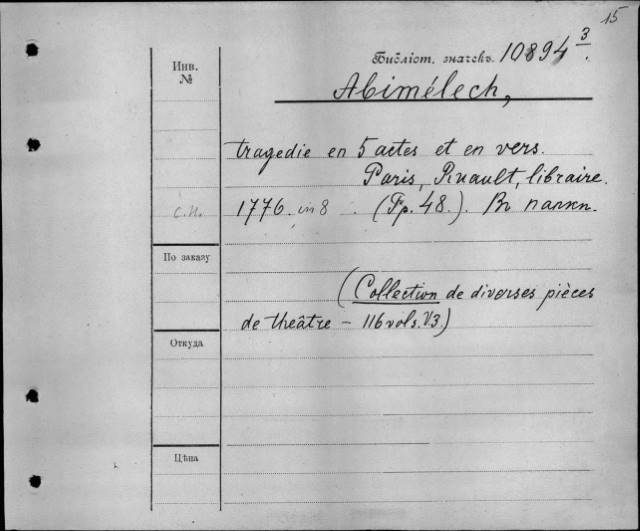 15
Библіот. значекъ. 10894 3.
Инв.
№
Abimélech,
tragedie en 5 actes et en vers.
Paris, Ruault, libraire.
С.И. 1776 in 8. (Pp. 48.). Въ папкѣ.
По заказу
(Collection de diverses pièces
de theâtre – 116 vols. V3.)
Откуда
Цѣна